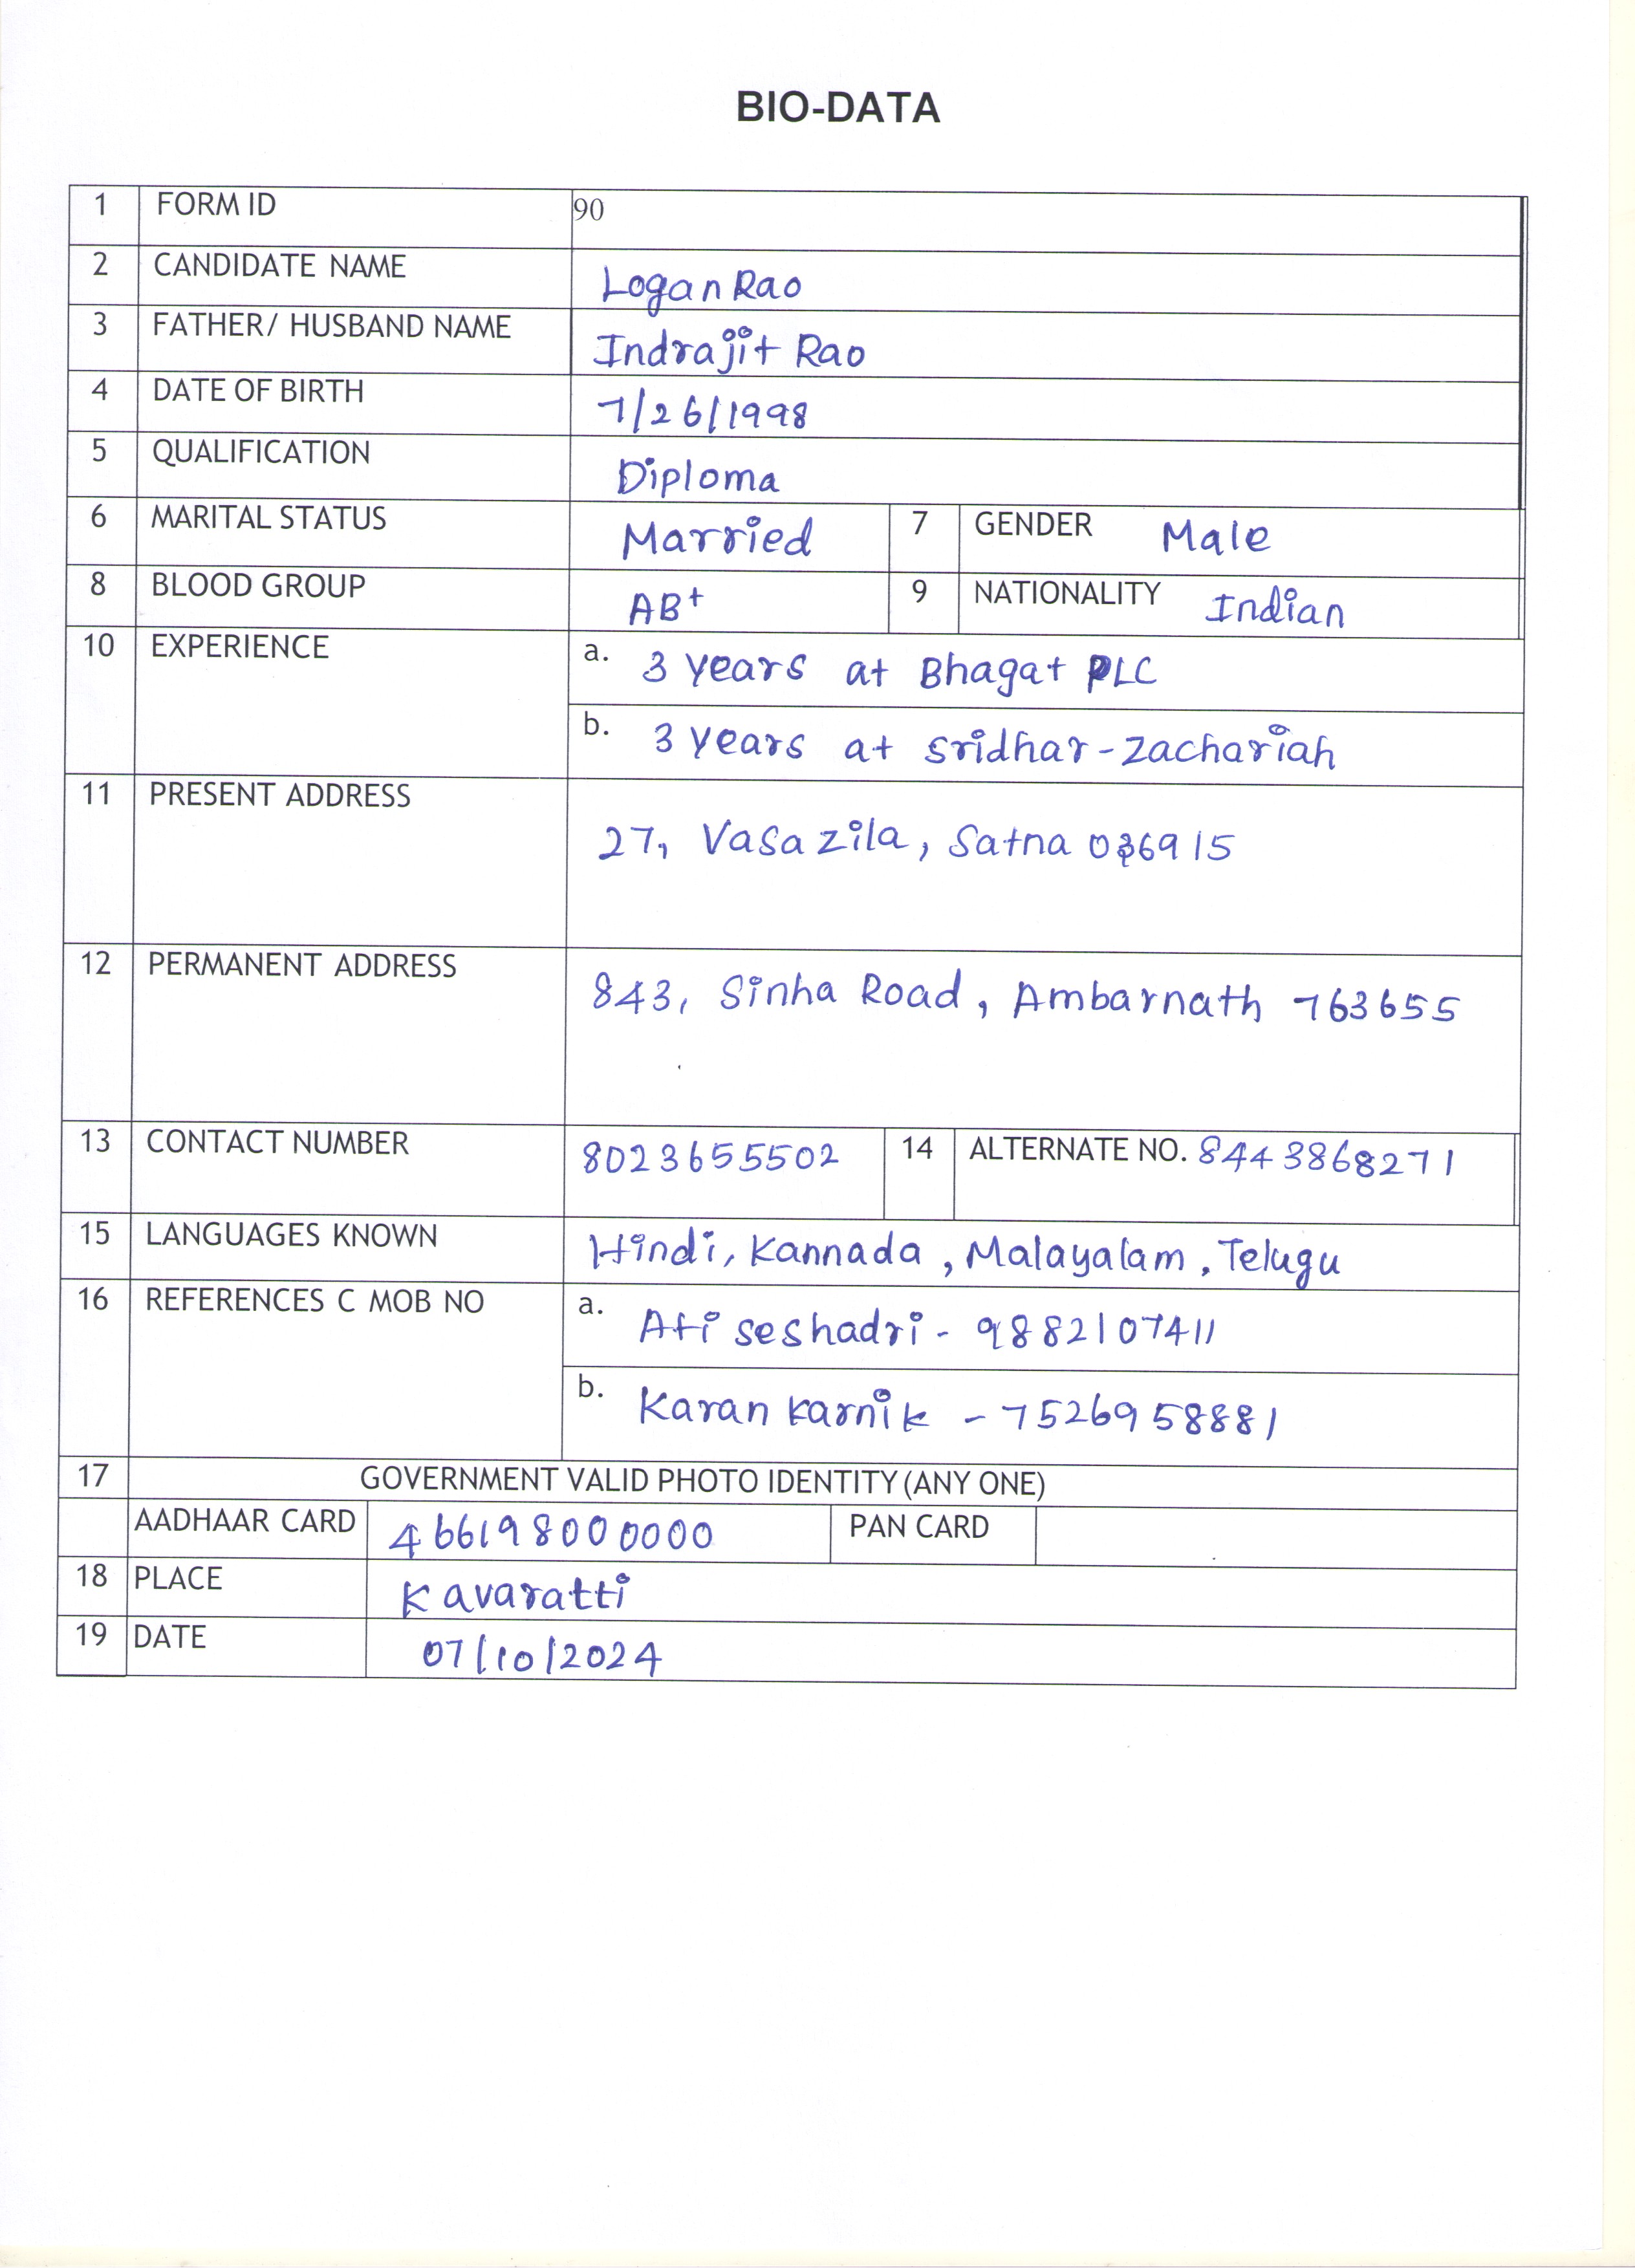 BIO-DATA
1 FORM ID 90
2 CANDIDATE NAME Logan Rao
3 FATHER/ HUSBAND NAME Indrajit Rao
4 DATE OF BIRTH 7/26/1998
5 QUALIFICATION Diploma
6 MARITAL STATUS Married 7 GENDER Male
8 BLOOD GROUP AB+ 9 NATIONALITY Indian
10 EXPERIENCE a. 3 years at Bhagat PLC
b. 3 years at Sridhar-Zachariah
11 PRESENT ADDRESS
27, Vasa Zila, Satna 036915
12 PERMANENT ADDRESS 843, Sinha Road, Ambarnath 763655
13 CONTACT NUMBER 8023655502 14 ALTERNATE NO. 8443868271
15 LANGUAGES KNOWN Hindi, Kannada, Malayalam, Telugu
16 REFERENCES C MOB NO a. Ati seshadri - 9882107411
b. Karan Karnik - 7526958881
17 GOVERNMENT VALID PHOTO IDENTITY (ANY ONE)
AADHAAR CARD 466198000000 PAN CARD
18 PLACE Kavaratti
19 DATE 07/10/2024